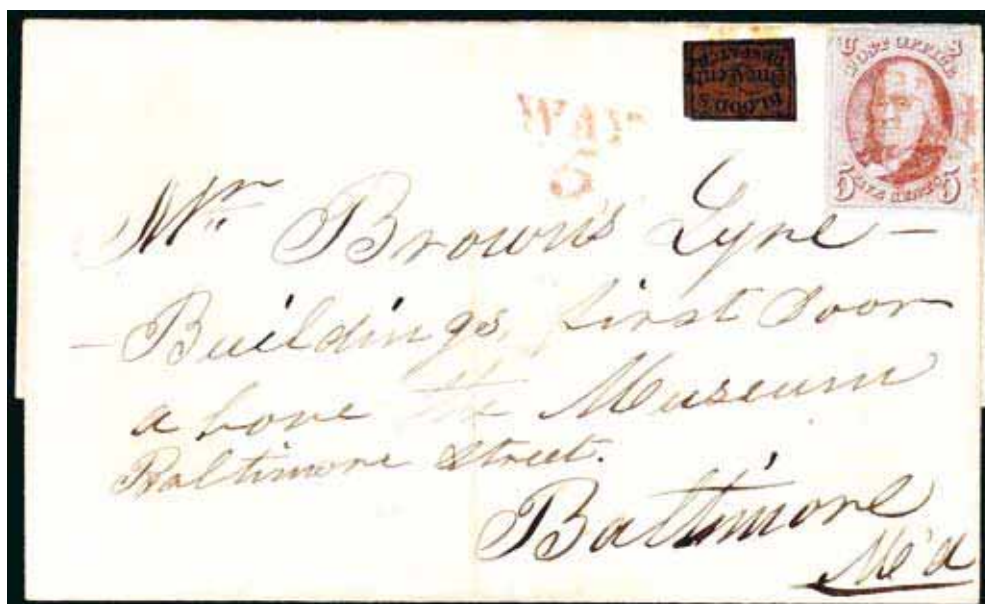 BLOOD'S
One Cent
DESPATCH
U S
POST OFFICE
5 FIVE CENTS 5
WAY
5
Mr Brown's Lyre —
— Buildings, first Door
above the Museum
Baltimore Street.
Baltimore
Md